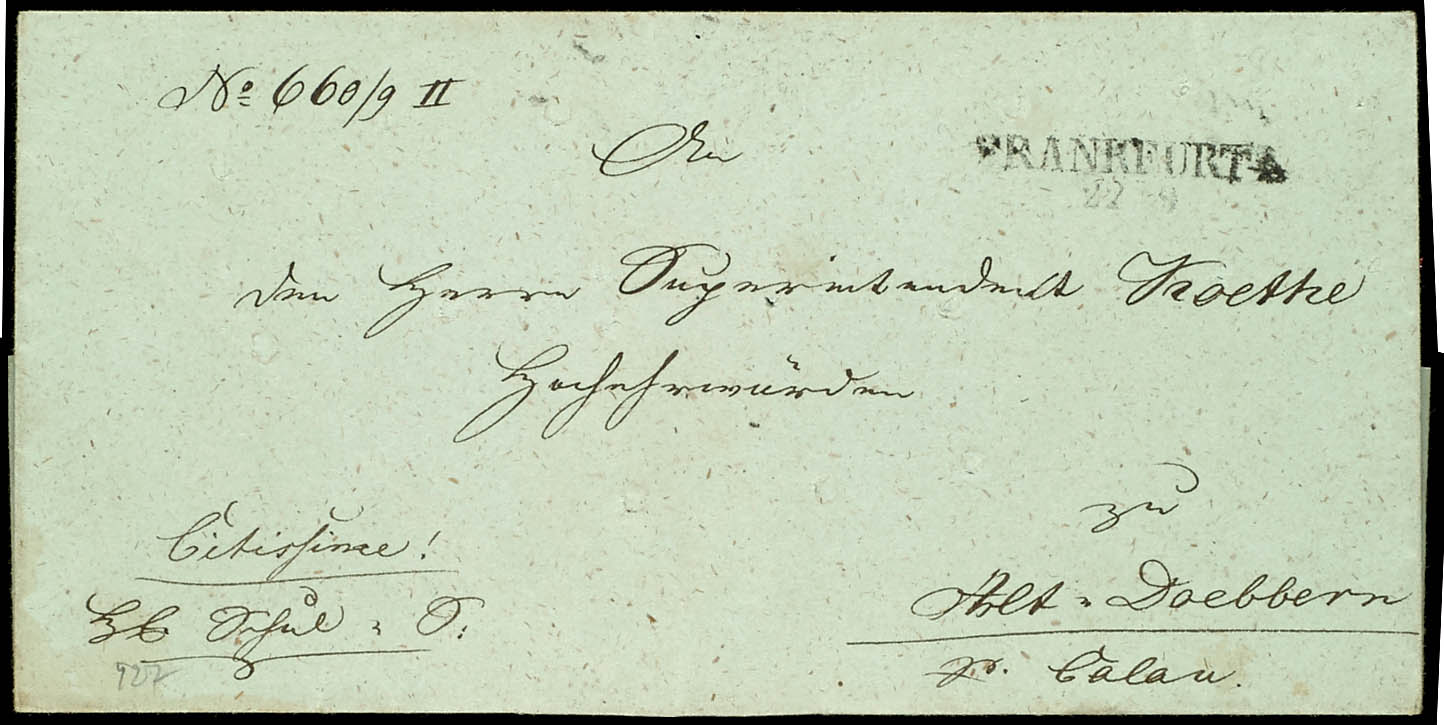 No 660/9 II
An
FRANKFURT
22 9
den Herrn Superintendent Koethe
Hochehrwürden
zu
Citissime!
Alt-Doebbern
Schul-S:
p. Calau.